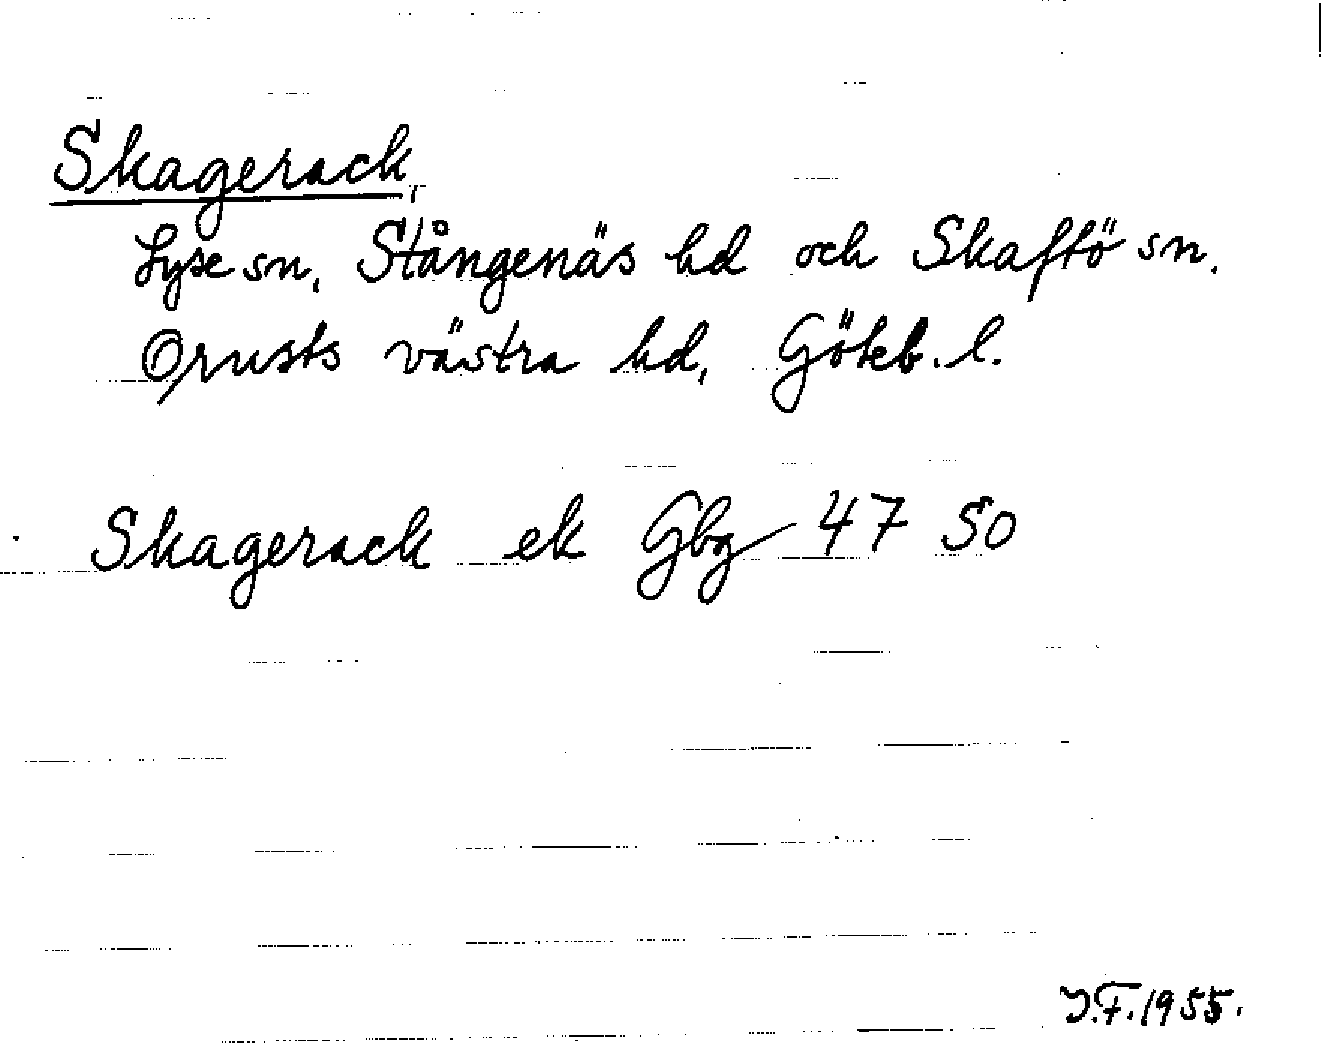 Skagerack
Lyse sn, Stångenäs hd och Skaftö sn.
Orusts västra hd, Göteb. l.
Skagerack ek Gbg 47 SO
J.F. 1955.